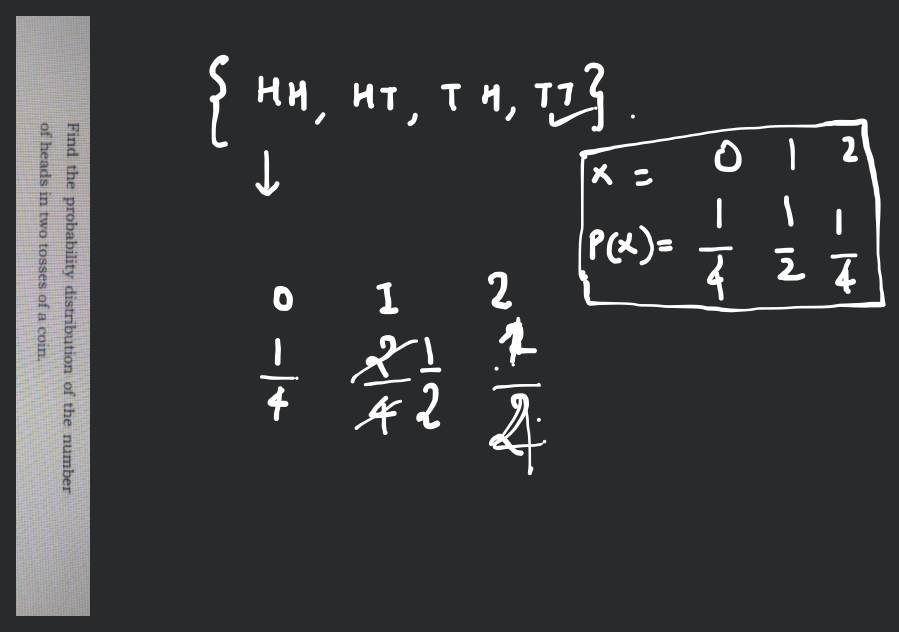 Find the probability distribution of the number
of heads in two tosses of a coin.
{ HH, HT, TH, TT } .
X = 0 1 2
P(X) = 1/4 1/2 1/4
0 1 2
1/4 2/4 1/2